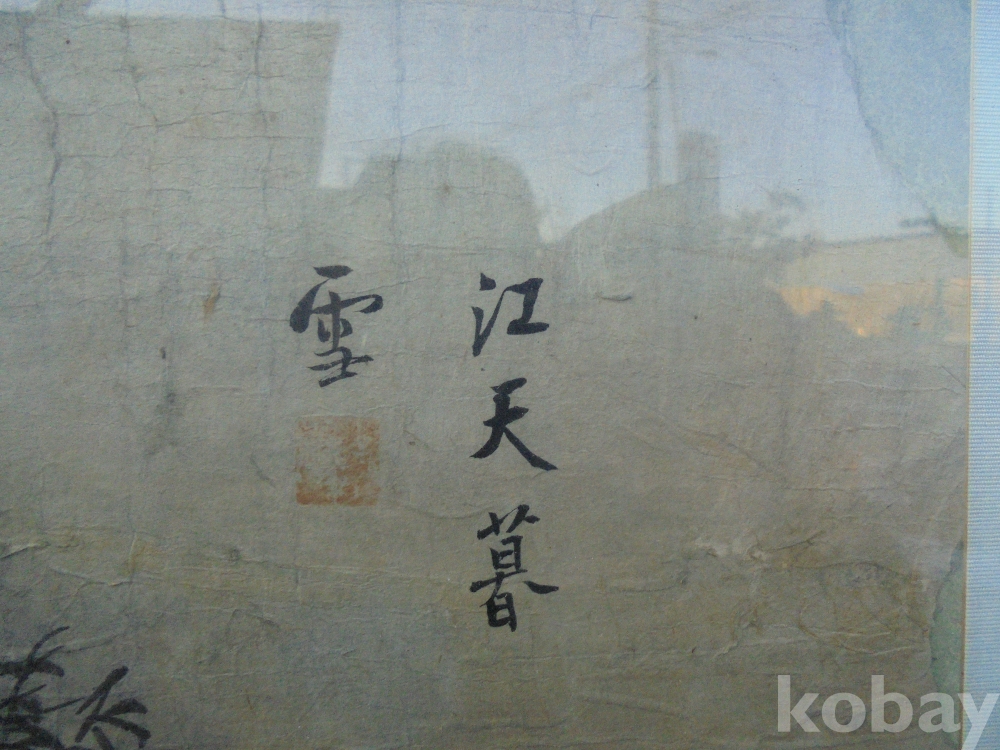 江天暮
雪
kobay